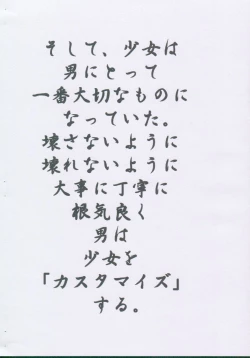 そして、少女は
男にとって
一番大切なものに
なっていた。
壊さないように
壊れないように
大事に丁寧に
根気良く
男は
少女を
「カスタマイズ」
する。